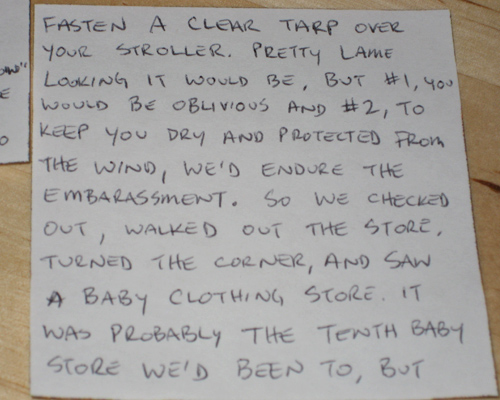 FASTEN A CLEAR TARP OVER
YOUR STROLLER. PRETTY LAME
LOOKING IT WOULD BE, BUT #1, YOU
WOULD BE OBLIVIOUS AND #2, TO
KEEP YOU DRY AND PROTECTED FROM
THE WIND, WE'D ENDURE THE
EMBARASSMENT. SO WE CHECKED
OUT, WALKED OUT THE STORE,
TURNED THE CORNER, AND SAW
A BABY CLOTHING STORE. IT
WAS PROBABLY THE TENTH BABY
STORE WE'D BEEN TO, BUT